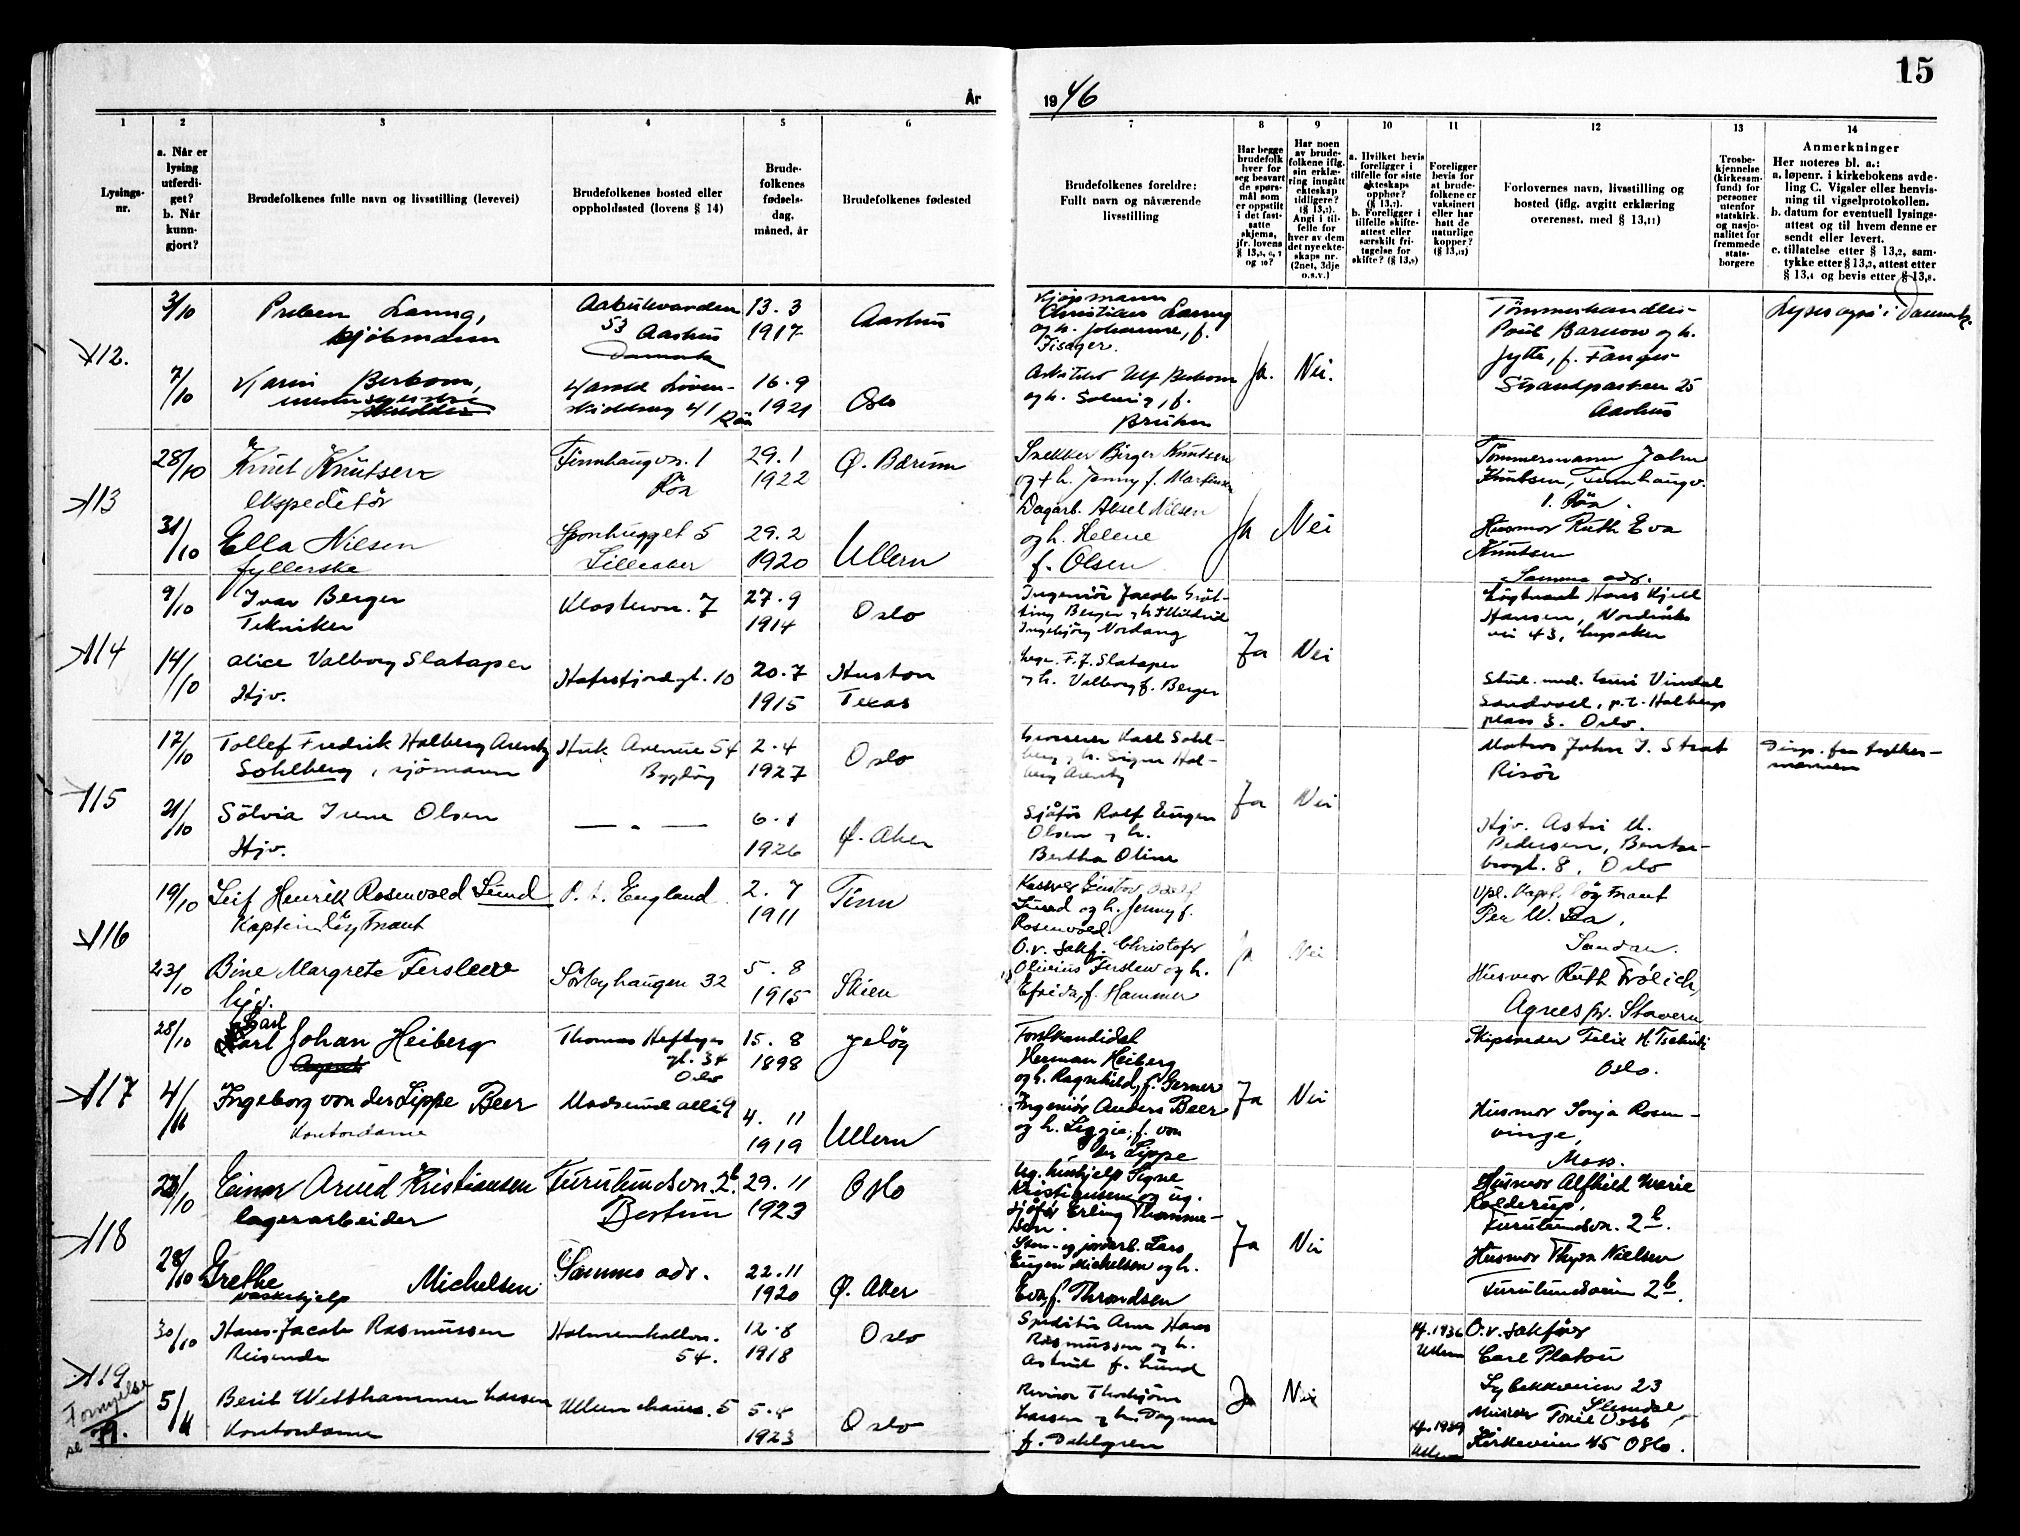 15
År
19 46
1
2
3
4
5
6
7
8
9
10
11
12
13
14
Lysings-
nr.
a. Når er
lysing
utferdi-
get?
b. Når
kunn-
gjort?
Brudefolkenes fulle navn og livsstilling (levevei)
Brudefolkenes bosted eller
oppholdssted (lovens § 14)
Brude-
folkenes
fødsels-
dag,
måned, år
Brudefolkenes fødested
Brudefolkenes foreldre:
Fullt navn og nåværende
livsstilling
Har begge
brudefolk
hver for
seg besvart
de spørs-
mål som
er oppstilt
i det fast-
satte
skjema,
jfr. lovens
§ 13,
og
Har noen
av brude-
folkene iflg.
sin erklæ-
ring inngått
ekteskap
tidligere?
Angi i til-
felle for
hver av dem
det nye ekte-
skaps nr.
(2net, 3dje
o.s.v.)
a. Hvilket bevis
foreligger i
tilfelle for siste
ekteskaps
opphør?
b. Foreligger i
tilfelle skifte-
attest eller
særskilt fri-
tagelse for
skifte?
Foreligger
bevis for
at brude-
folkene er
vaksinert
eller har
hatt de
naturlige
kopper?
Forlovernes navn, livsstilling og
bosted (iflg. avgitt erklæring
overensst. med § 13,11)
Trosbe-
kjennelse
(kirkesam-
fund) for
personer
utenfor
statskirk.
og nasjo-
nalitet for
fremmede
stats-
borgere
Anmerkninger
Her noteres bl. a.:
a. løpenr. i kirkebokens avde-
ling C. Vigsler eller henvis-
ning til vigselprotokollen.
b. datum for eventuell lysings-
attest og til hvem denne er
sendt eller levert.
c. tillatelse etter § 13,2, sam-
tykke etter § 13,3, attest etter
§ 13,4 og bevis etter § 13,8.
112.
3/10
Preben Lanng,
kjøbmann
53 Aarhus
Danmark
13.3
1917
Aarhus
Kjøpmann
Christian Lanng
og h. Johanne, f.
Fisager.
Ja.
Nei.
Poul Barnow og h.
Jytte, f.
Strandparken 25
Aarhus
Lyses også i Danmark.
7/10
Karin
Harald Løven-
skioldsveg 41 Røa
16.9
1921
Oslo
Arkitekt Ulf
og h. Solveig, f.
Bruhn
113
28/10
Knut Knutsen
ekspeditør
Finnhaugvn. 1
Røa
29.1
1922
Ø. Bærum
Snekker Birger Knutsen
og + h. Jenny f.
Ja
Nei
Tømmermann John
Knutsen, Finnhaugv.
1. Røa.
31/10
Ella Nilsen
fyllerske
5
Lilleaker
29.2
1920
Ullern
Dagarb. Aksel Nilsen
og h. Helene
f. Olsen
Husmor Ruth Eva
Knutsen
Samme adr.
114
9/10
Ivar Berger
Tekniker
7
27.9
1914
Oslo
Ingeniør Jacob
Ingebjørg Nordang
Ja
Nei
Løytnant Hans Kjell
Hansen, Nordraaks
vei 43, Lysaker
14/10
Alice Valborg Slataper
Hjv.
Hafrsfjordgt. 10
20.7
1915
Huston
Texas
F. J. Slataper
og h. Valborg f. Berger
Stud. med.
Sandvold, p.t. Holbergs
plass 3. Oslo.
115
17/10
Tollef Fredrik Holberg Arentz
Sohlberg, sjømann
Huk Avenue 54
Bygdøy
2.4
1927
Oslo
Grosserer Karl Sohl-
berg og h. Signe Hol-
berg Arentz
Ja
Nei
Matros John J.
Risör
Disp. fra fylkes-
mannen
21/10
Sölvia Irene Olsen
Hjv.
— „ —
6.1
1926
Ø. Aker
Sjåfør Rolf Eugen
Olsen og h.
Bertha Oline
Hjv. Astri M.
Pedersen,
8, Oslo
116
19/10
Leif Henrik Rosenvold Lund
Kaptein
P. t. England
2. 7
1911
Tinn
Kasserer Gustav Adolf
Lund og h. Jenny f.
Rosenvold.
Ja
Nei
Per W.
23/10
Bine Margrete Ferslew
hjv.
Sörbyhaugen 32
5. 8
1915
Skien
O.r. sakf. Christofer
Olivius Ferslew og h.
Efrida, f. Hammer
Husmor Ruth Frölich,
Agnes pr. Stavern
117
28/10
Carl
Johan Heiberg
Thomas Heftyes
gt. 34
Oslo
15. 8
1898
Jeløy
Forstkandidat
Herman Heiberg
og h. Ragnhild, f. Gerner
Ja
Nei
Skipsreder Felix H. Tschudi
Oslo.
4/11
Ingeborg von der Lippe Beer
Kontordame
Madserud allé 9
4. 11
1919
Ullern
Ingeniör Anders Beer
og h. Liggie, f. von
der Lippe
Husmor Sonja Rosen-
vinge,
Moss.
118
23/10
Einar Arvid Kristiansen
lagerarbeider
Furulundsvn. 2b.
Bestum
29.11
1923
Oslo
Ug. hushjelp Signe
Kristiansen og ug.
sjåfør Erling Thomme-
sen.
Ja
Nei
Husmor Alfhild Marie
Kolderup,
Furulundsvn. 2b.
28/10
Grethe Michelsen
vaskehjelp
Samme adr.
22.11
1920
Ø. Aker
Sten- og jordarb. Lars
Eugen Michelsen og h.
Eva, f. Throndsen
Husmor Thyra Nielsen
Furulundsveien 2b.
119
Fornyelse
se 71.
30/10
Hans-Jacob Rasmussen
Reisende
Holmenkollvn.
54.
12.8
1918
Oslo
Speditør Arne Hans
Rasmussen og h.
Astrid f. Lund
Ja
Nei
1936
Ullern
O.r. sakfører
Carl Platou
Lybekkveien 23
Slemdal
5/11
Berit Wetthammer Larsen
Kontordame
5
5.4
1923
Oslo
Revisor Thorbjørn
Larsen og h. Dagmar
f. Dahlgren
1939
Ullern
Kirkeveien 45 Oslo.